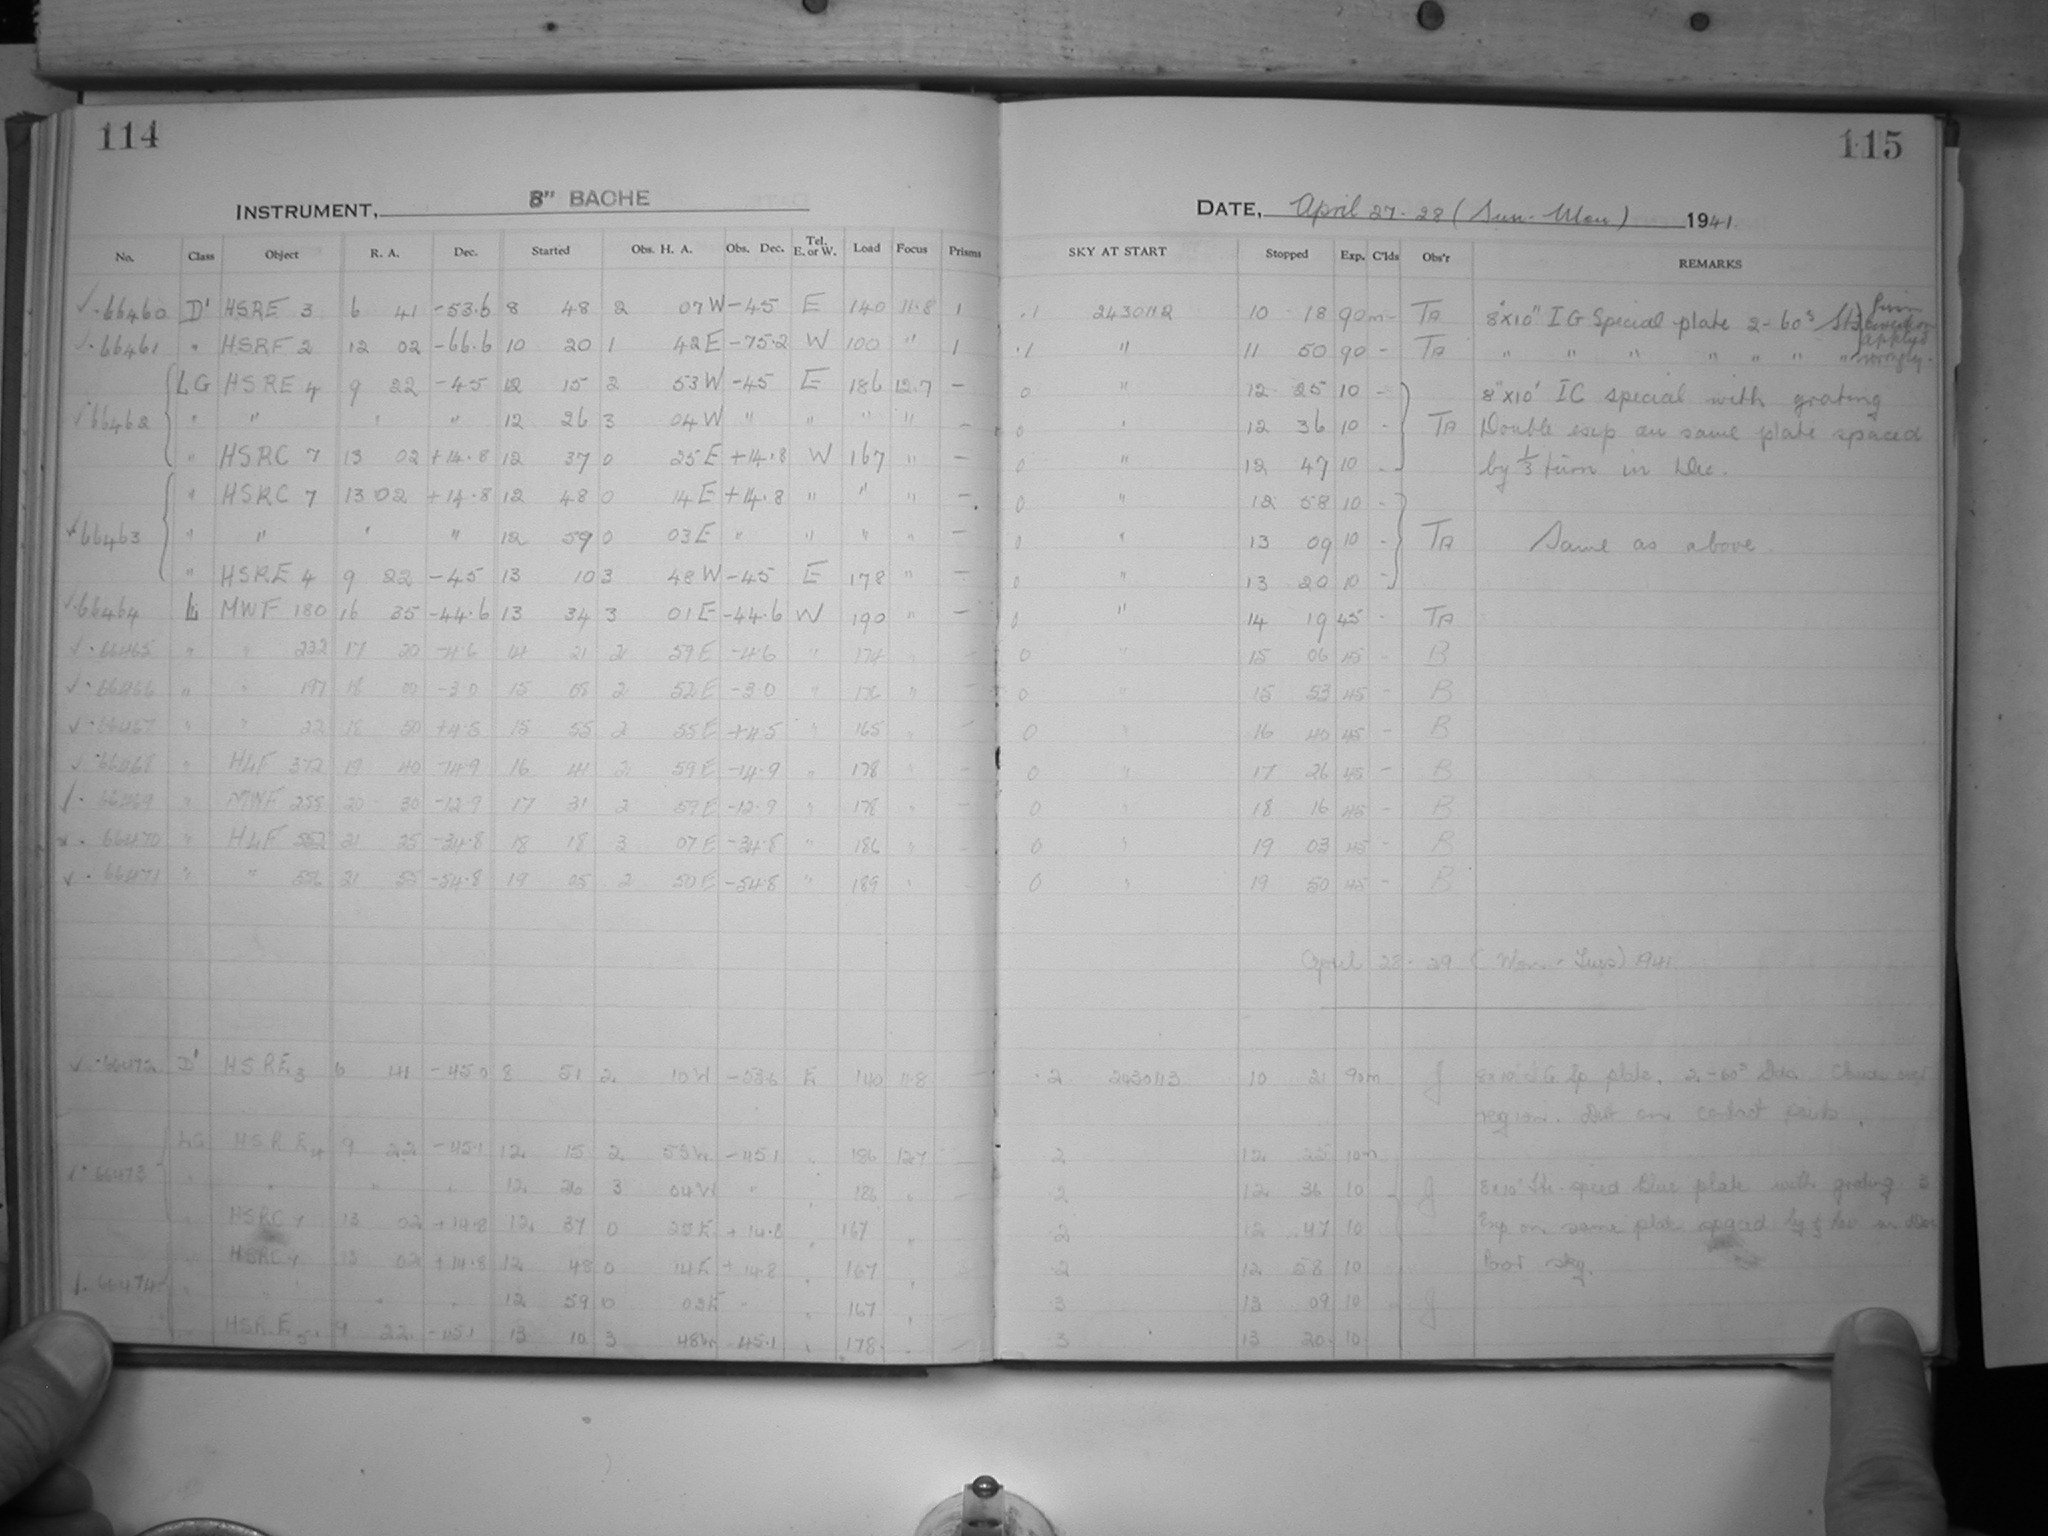 114
INSTRUMENT, 8" BACHE
No. Class Object R. A. Dec. Started Obs. H. A. Obs. Dec. Tel. E. or W. Load Focus Prisms
✓·66460 D' HSRE 3 6 41 -53.6 8 48 2 07W -45 E 140 11.8 1
✓·66461 " HSRF 2 12 02 -66.6 10 20 1 42E -75.2 W 100 " 1
LG HSRE 4 9 22 -45 12 15 2 53W -45 E 186 12.7 -
✓66462 " " " " 12 26 3 04W " " " " -
" HSRC 7 13 02 +14.8 12 37 0 25E +14.8 W 167 " -
" HSRC 7 13 02 +14.8 12 48 0 14E +14.8 " " " -
✓66463 " " " " 12 59 0 03E " " " " -
" HSRE 4 9 22 -45 13 10 3 48W -45 E 178 " -
✓66464 L MWF 180 16 35 -44.6 13 34 3 01E -44.6 W 190 " -
✓·66465 " " 232 17 20 -4.6 14 21 2 59E -4.6 " 174 " -
✓·66466 " " 197 18 00 -30 15 08 2 52E -30 " 176 " -
✓·66467 " " 22 18 50 +4.5 15 55 2 55E +4.5 " 165 " -
✓·66468 " HLF 372 19 40 -14.9 16 41 2 59E -14.9 " 178 " -
66469 " MWF 255 20 30 -12.9 17 31 2 59E -12.9 " 178 " -
66470 " HLF 552 21 25 -34.8 18 18 3 07E -34.8 " 186 " -
✓·66471 " " 556 21 55 -54.8 19 05 2 50E -54.8 " 189 " -
✓·66472 D' HSRE 3 6 41 -45.0 8 51 2 10W -53.6 E 140 11.8 -
LG HSRE 4 9 22 -45.1 12 15 2 53W -45.1 " 186 12.7 -
✓·66473 " " " " 12 26 3 04W " " 186 " -
" HSRC 7 13 02 +14.8 12 37 0 25E +14.8 " 167 "
HSRC 7 13 02 +14.8 12 48 0 14E +14.8 " 167 "
66474 " " " " 12 59 0 03E " " 167 "
HSRE 9 22 -45.1 13 10 3 48W 45.1 " 178 " -
115
DATE, April 27-28 (Sun-Mon) 1941
SKY AT START Stopped Exp. C'lds Obs'r REMARKS
.1 2430112 10 18 90m - TA 8"x10" IG Special plate 2-60s Prism correction applied wrongly.
.1 " 11 50 90 - TA " " " " " " "
0 " 12 25 10 - 8"x10" IC special with grating
0 " 12 36 10 - TA Double exp on same plate spaced
0 " 12 47 10 - by 1/3 turn in Dec.
0 12 58 10 -
0 " 13 09 10 - TA Same as above.
0 " 13 20 10 -
0 " 14 19 45 - TA
0 " 15 06 45 - B
0 " 15 53 45 - B
0 " 16 40 45 - B
0 " 17 26 45 - B
0 " 18 16 45 - B
0 " 19 03 45 - B
0 " 19 50 45 - B
April 28-29 (Mon-Tues) 1941
.2 2430113 10 21 90m J 8x10" IG Sp plate. 2-60s Stds. over
region. on contact
.2 12 25 10m
.2 12 36 10 J 8x10" Hi-speed Blue plate with grating 3
.2 12 47 10 Exp on same plate spaced by 1/3 in Dec
.2 12 58 10 Poor sky.
.3 13 09 10 J
.3 13 20 10